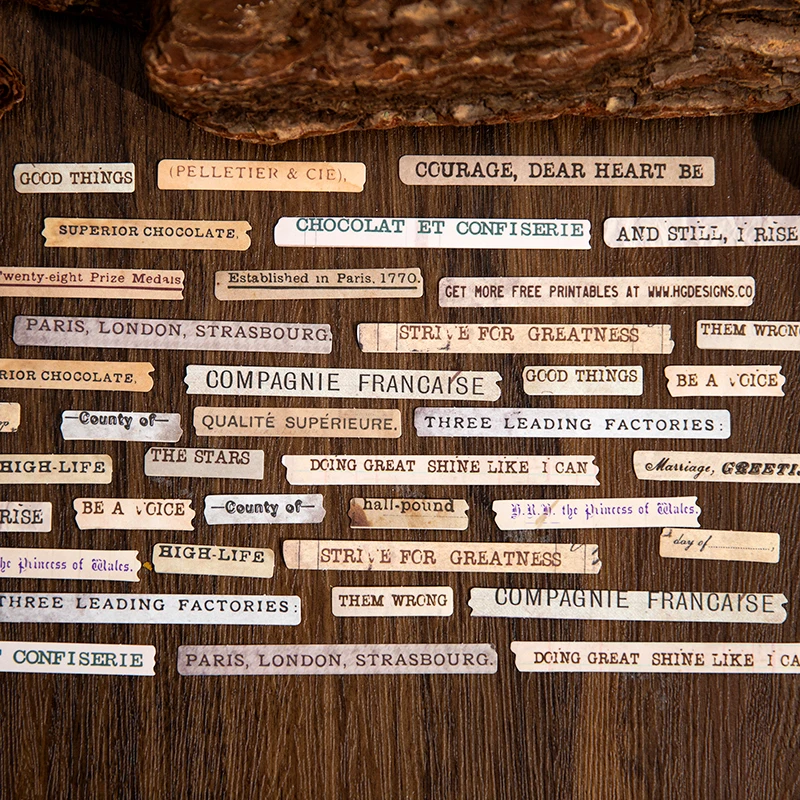 GOOD THINGS
(PELLETIER & CIE),
COURAGE, DEAR HEART BE
SUPERIOR CHOCOLATE,
CHOCOLAT ET CONFISERIE
AND STILL, I RISE
Twenty-eight Prize Medals
Established in Paris, 1770.
GET MORE FREE PRINTABLES AT WWW.HGDESIGNS.CO
PARIS, LONDON, STRASBOURG.
STRIVE FOR GREATNESS
THEM WRONG
RIOR CHOCOLATE,
COMPAGNIE FRANCAISE
GOOD THINGS
BE A VOICE
County of
QUALITÉ SUPÉRIEURE.
THREE LEADING FACTORIES:
HIGH-LIFE
THE STARS
DOING GREAT SHINE LIKE I CAN
Marriage, GREETI
RISE
BE A VOICE
County of
half-pound
H.R.H. the Princess of Wales.
day of
he Princess of Wales.
HIGH-LIFE
STRIVE FOR GREATNESS
THREE LEADING FACTORIES:
THEM WRONG
COMPAGNIE FRANCAISE
T CONFISERIE
PARIS, LONDON, STRASBOURG.
DOING GREAT SHINE LIKE I CA